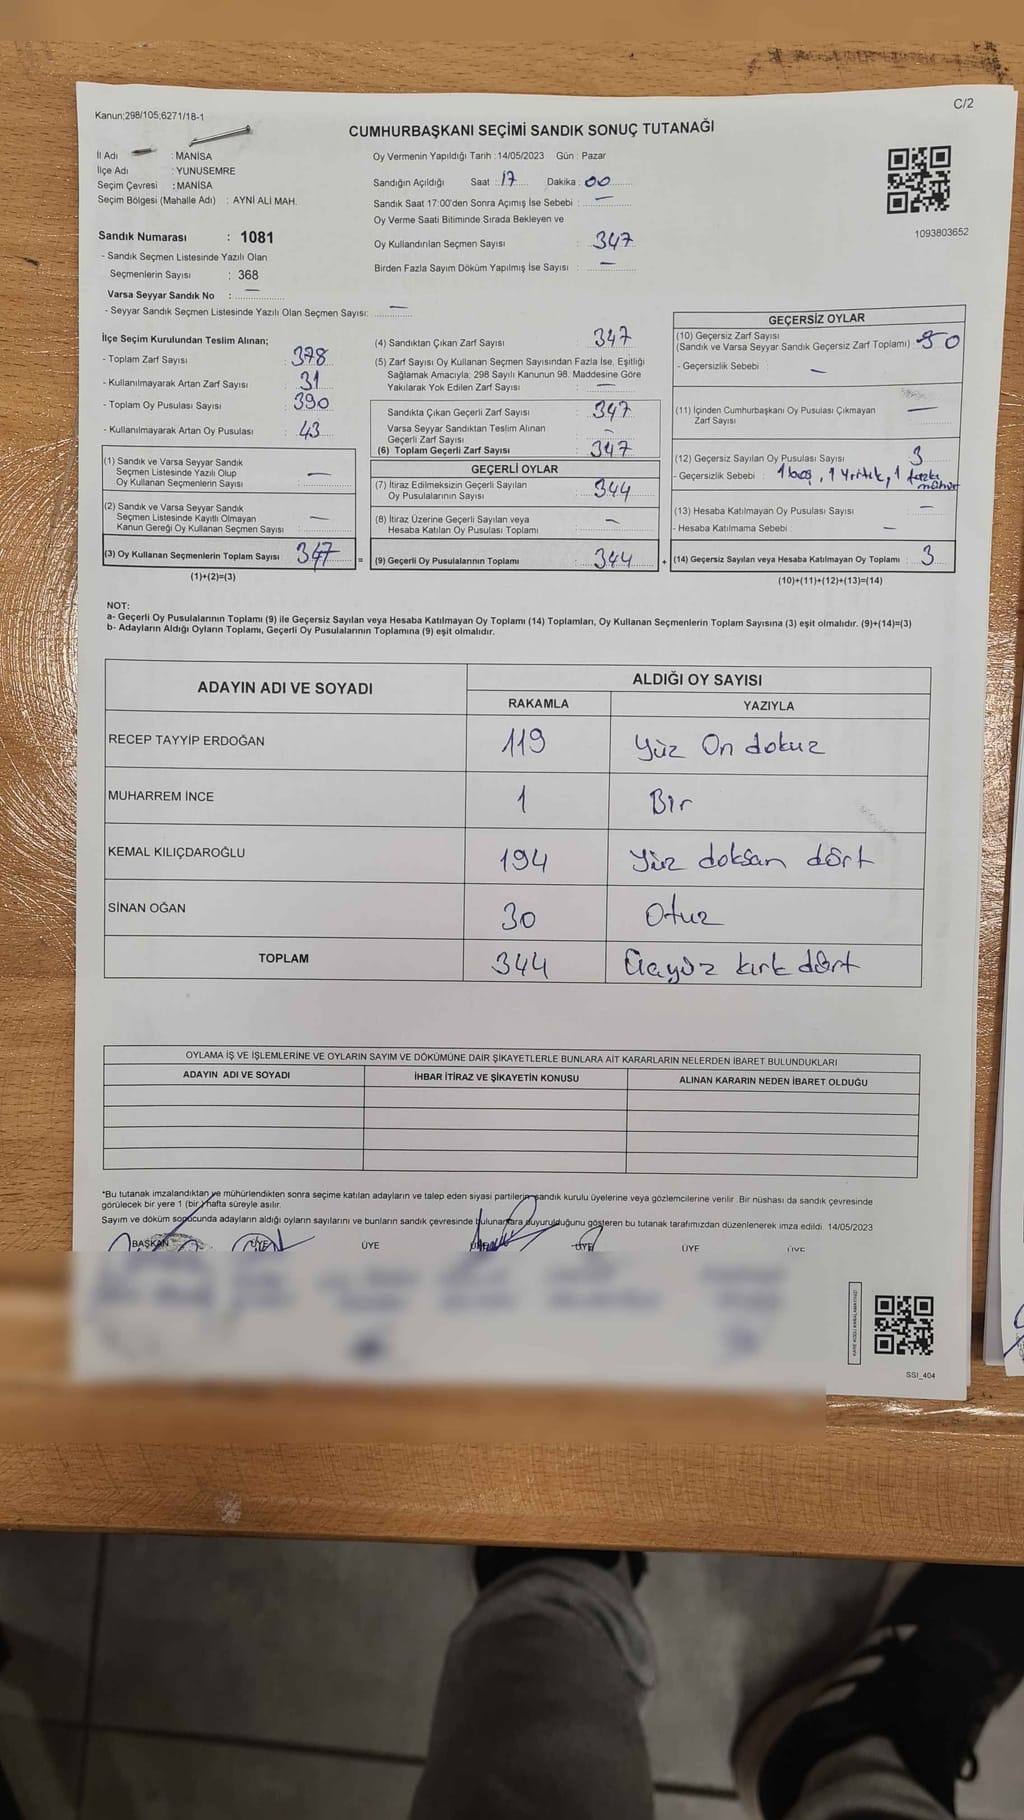 C/2
Kanun;298/105;6271/18-1
CUMHURBAŞKANI SEÇİMİ SANDIK SONUÇ TUTANAĞI
İl Adı : MANİSA
İlçe Adı : YUNUSEMRE
Seçim Çevresi : MANİSA
Seçim Bölgesi (Mahalle Adı) : AYNİ ALİ MAH.
Sandık Numarası : 1081
- Sandık Seçmen Listesinde Yazılı Olan
Seçmenlerin Sayısı : 368
Varsa Seyyar Sandık No : —
- Seyyar Sandık Seçmen Listesinde Yazılı Olan Seçmen Sayısı: —
Oy Vermenin Yapıldığı Tarih :14/05/2023 Gün : Pazar
Sandığın Açıldığı Saat : 17 Dakika : 00
Sandık Saat 17:00'den Sonra Açımış İse Sebebi : —
Oy Verme Saati Bitiminde Sırada Bekleyen ve
Oy Kullandırılan Seçmen Sayısı : 347
Birden Fazla Sayım Döküm Yapılmış İse Sayısı : —
1093803652
İlçe Seçim Kurulundan Teslim Alınan;
- Toplam Zarf Sayısı : 378
- Kullanılmayarak Artan Zarf Sayısı : 31
- Toplam Oy Pusulası Sayısı : 390
- Kullanılmayarak Artan Oy Pusulası : 43
(1) Sandık ve Varsa Seyyar Sandık
Seçmen Listesinde Yazılı Olup
Oy Kullanan Seçmenlerin Sayısı : —
(2) Sandık ve Varsa Seyyar Sandık
Seçmen Listesinde Kayıtlı Olmayan
Kanun Gereği Oy Kullanan Seçmen Sayısı : —
(3) Oy Kullanan Seçmenlerin Toplam Sayısı : 347
(1)+(2)=(3)
(4) Sandıktan Çıkan Zarf Sayısı : 347
(5) Zarf Sayısı Oy Kullanan Seçmen Sayısından Fazla İse, Eşitliği
Sağlamak Amacıyla; 298 Sayılı Kanunun 98. Maddesine Göre
Yakılarak Yok Edilen Zarf Sayısı : —
Sandıkta Çıkan Geçerli Zarf Sayısı : 347
Varsa Seyyar Sandıktan Teslim Alınan
Geçerli Zarf Sayısı : —
(6) Toplam Geçerli Zarf Sayısı : 347
GEÇERLİ OYLAR
(7) İtiraz Edilmeksizin Geçerli Sayılan
Oy Pusulalarının Sayısı : 344
(8) İtiraz Üzerine Geçerli Sayılan veya
Hesaba Katılan Oy Pusulası Toplamı : —
= (9) Geçerli Oy Pusulalarının Toplamı : 344 +
GEÇERSİZ OYLAR
(10) Geçersiz Zarf Sayısı
(Sandık ve Varsa Seyyar Sandık Geçersiz Zarf Toplamı) : 50
- Geçersizlik Sebebi : —
(11) İçinden Cumhurbaşkanı Oy Pusulası Çıkmayan
Zarf Sayısı : —
(12) Geçersiz Sayılan Oy Pusulası Sayısı : 3
- Geçersizlik Sebebi : 1 boş, 1 Yırtık, 1 fazla
mühür
(13) Hesaba Katılmayan Oy Pusulası Sayısı : —
- Hesaba Katılmama Sebebi : —
(14) Geçersiz Sayılan veya Hesaba Katılmayan Oy Toplamı : 3
(10)+(11)+(12)+(13)=(14)
NOT:
a- Geçerli Oy Pusulalarının Toplamı (9) ile Geçersiz Sayılan veya Hesaba Katılmayan Oy Toplamı (14) Toplamları, Oy Kullanan Seçmenlerin Toplam Sayısına (3) eşit olmalıdır. (9)+(14)=(3)
b- Adayların Aldığı Oyların Toplamı, Geçerli Oy Pusulalarının Toplamına (9) eşit olmalıdır.
ADAYIN ADI VE SOYADI ALDIĞI OY SAYISI
RAKAMLA YAZIYLA
RECEP TAYYİP ERDOĞAN 119 Yüz On dokuz
MUHARREM İNCE 1 Bir
KEMAL KILIÇDAROĞLU 194 Yüz doksan dört
SİNAN OĞAN 30 Otuz
TOPLAM 344 Üçyüz kırk dört
OYLAMA İŞ VE İŞLEMLERİNE VE OYLARIN SAYIM VE DÖKÜMÜNE DAİR ŞİKAYETLERLE BUNLARA AİT KARARLARIN NELERDEN İBARET BULUNDUKLARI
ADAYIN ADI VE SOYADI İHBAR İTİRAZ VE ŞİKAYETİN KONUSU ALINAN KARARIN NEDEN İBARET OLDUĞU
*Bu tutanak imzalandıktan ve mühürlendikten sonra seçime katılan adayların ve talep eden siyasi partilerin sandık kurulu üyelerine veya gözlemcilerine verilir .Bir nüshası da sandık çevresinde
görülecek bir yere 1 (bir) hafta süreyle asılır.
Sayım ve döküm sonucunda adayların aldığı oyların sayılarını ve bunların sandık çevresinde bulunanlara duyurulduğunu gösteren bu tutanak tarafımızdan düzenlenerek imza edildi. 14/05/2023
BAŞKAN ÜYE ÜYE ÜYE ÜYE ÜYE ÜYE
SSI_404